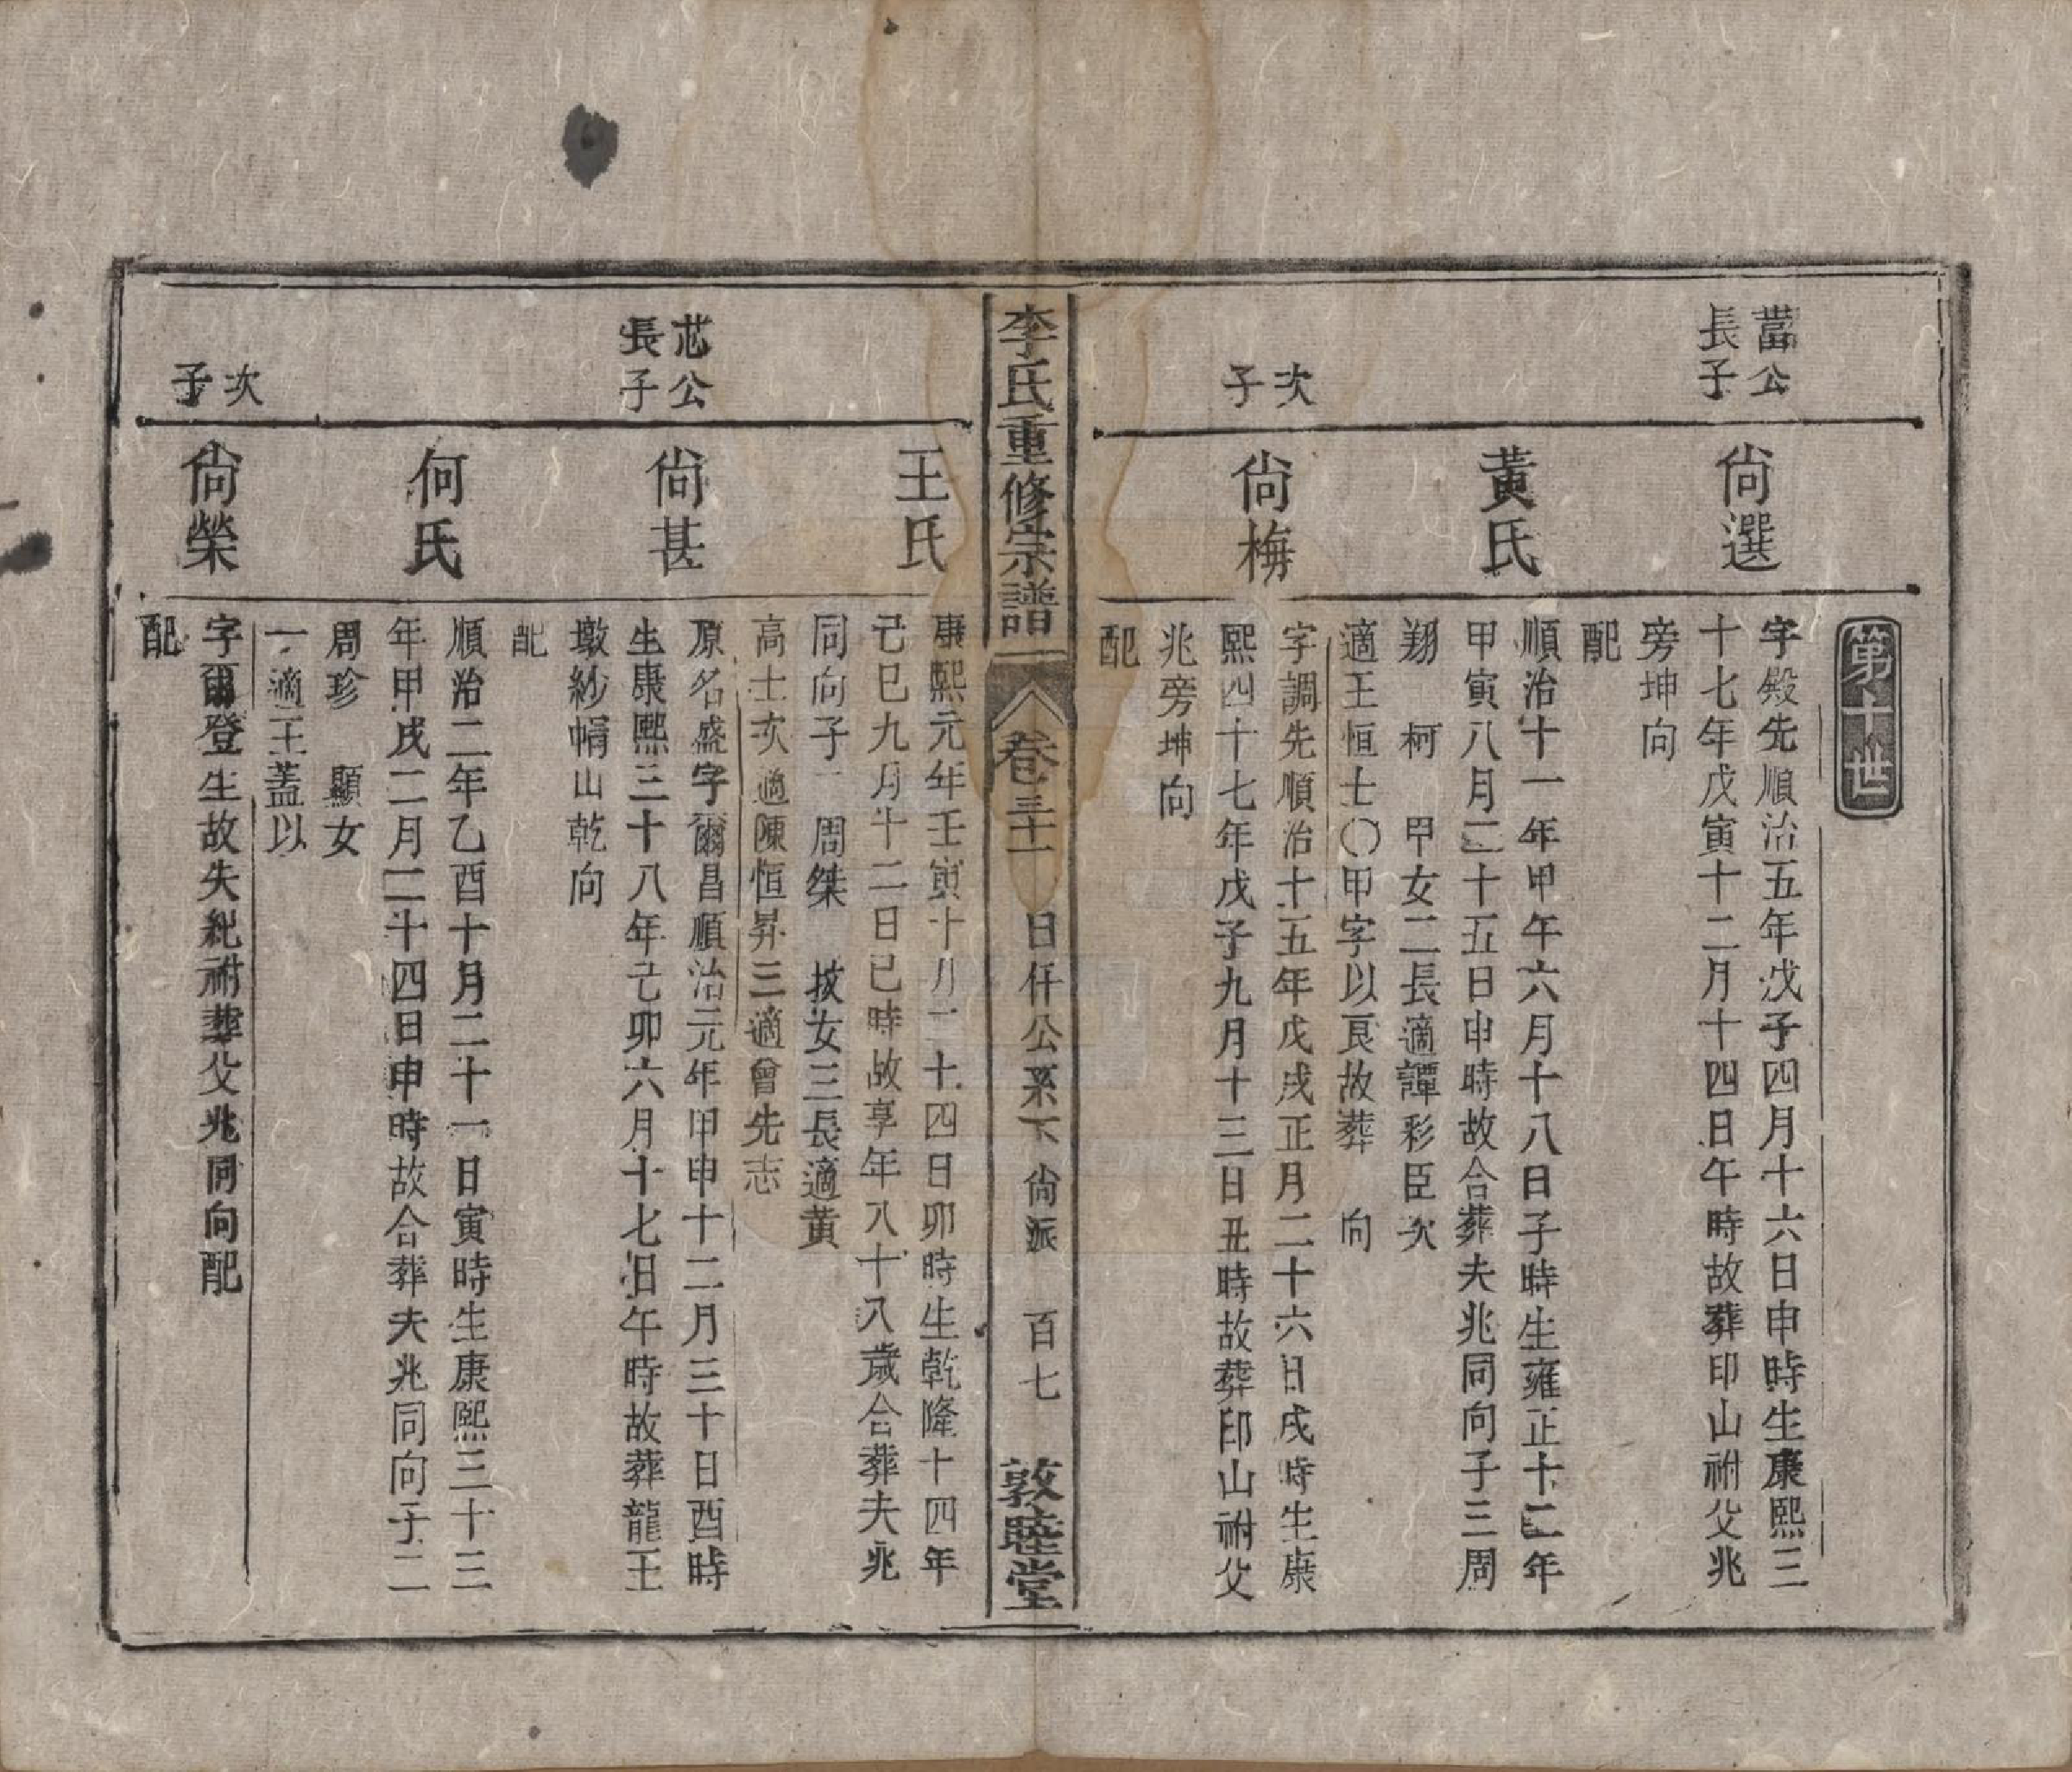 第十世
蓸公
長子
尙選
字殿先順治五年戊子四月十六日申時生康熙三
十七年戊寅十二月十四日午時故葬印山祔父兆
旁坤向
配
黃氏
順治十一年甲午六月十八日子時生雍正十二年
甲寅八月二十五日申時故合葬夫兆同向子三周
翔 柯 甲女二長適譚彩臣次
適王恒士〇甲字以艮故葬 向
次
子
尙梅
字調先順治十五年戊戌正月二十六日戌時生康
熙四十七年戊子九月十三日丑時故葬印山祔父
兆旁坤向
配
李氏重修宗譜
卷三十一 日仟公系下尙派 百七 敦睦堂
王氏
康熙元年壬寅十月二十四日卯時生乾隆十四年
己巳九月十二日巳時故享年八十八歲合葬夫兆
同向子二周桀 拔女三長適黃
高士次適陳恒昇三適曾先志
芯公
長子
尙甚
原名盛字爾昌順治元年甲申十二月三十日酉時
生康熙三十八年己卯六月十七日午時故葬龍王
墩紗帽山乾向
配
何氏
順治二年乙酉十月二十一日寅時生康熙三十三
年甲戌二月二十四日申時故合葬夫兆同向子二
周珍 顯女
一適王蓋以
次
子
尙榮
字爾登生故失紀祔葬父兆同向配
配